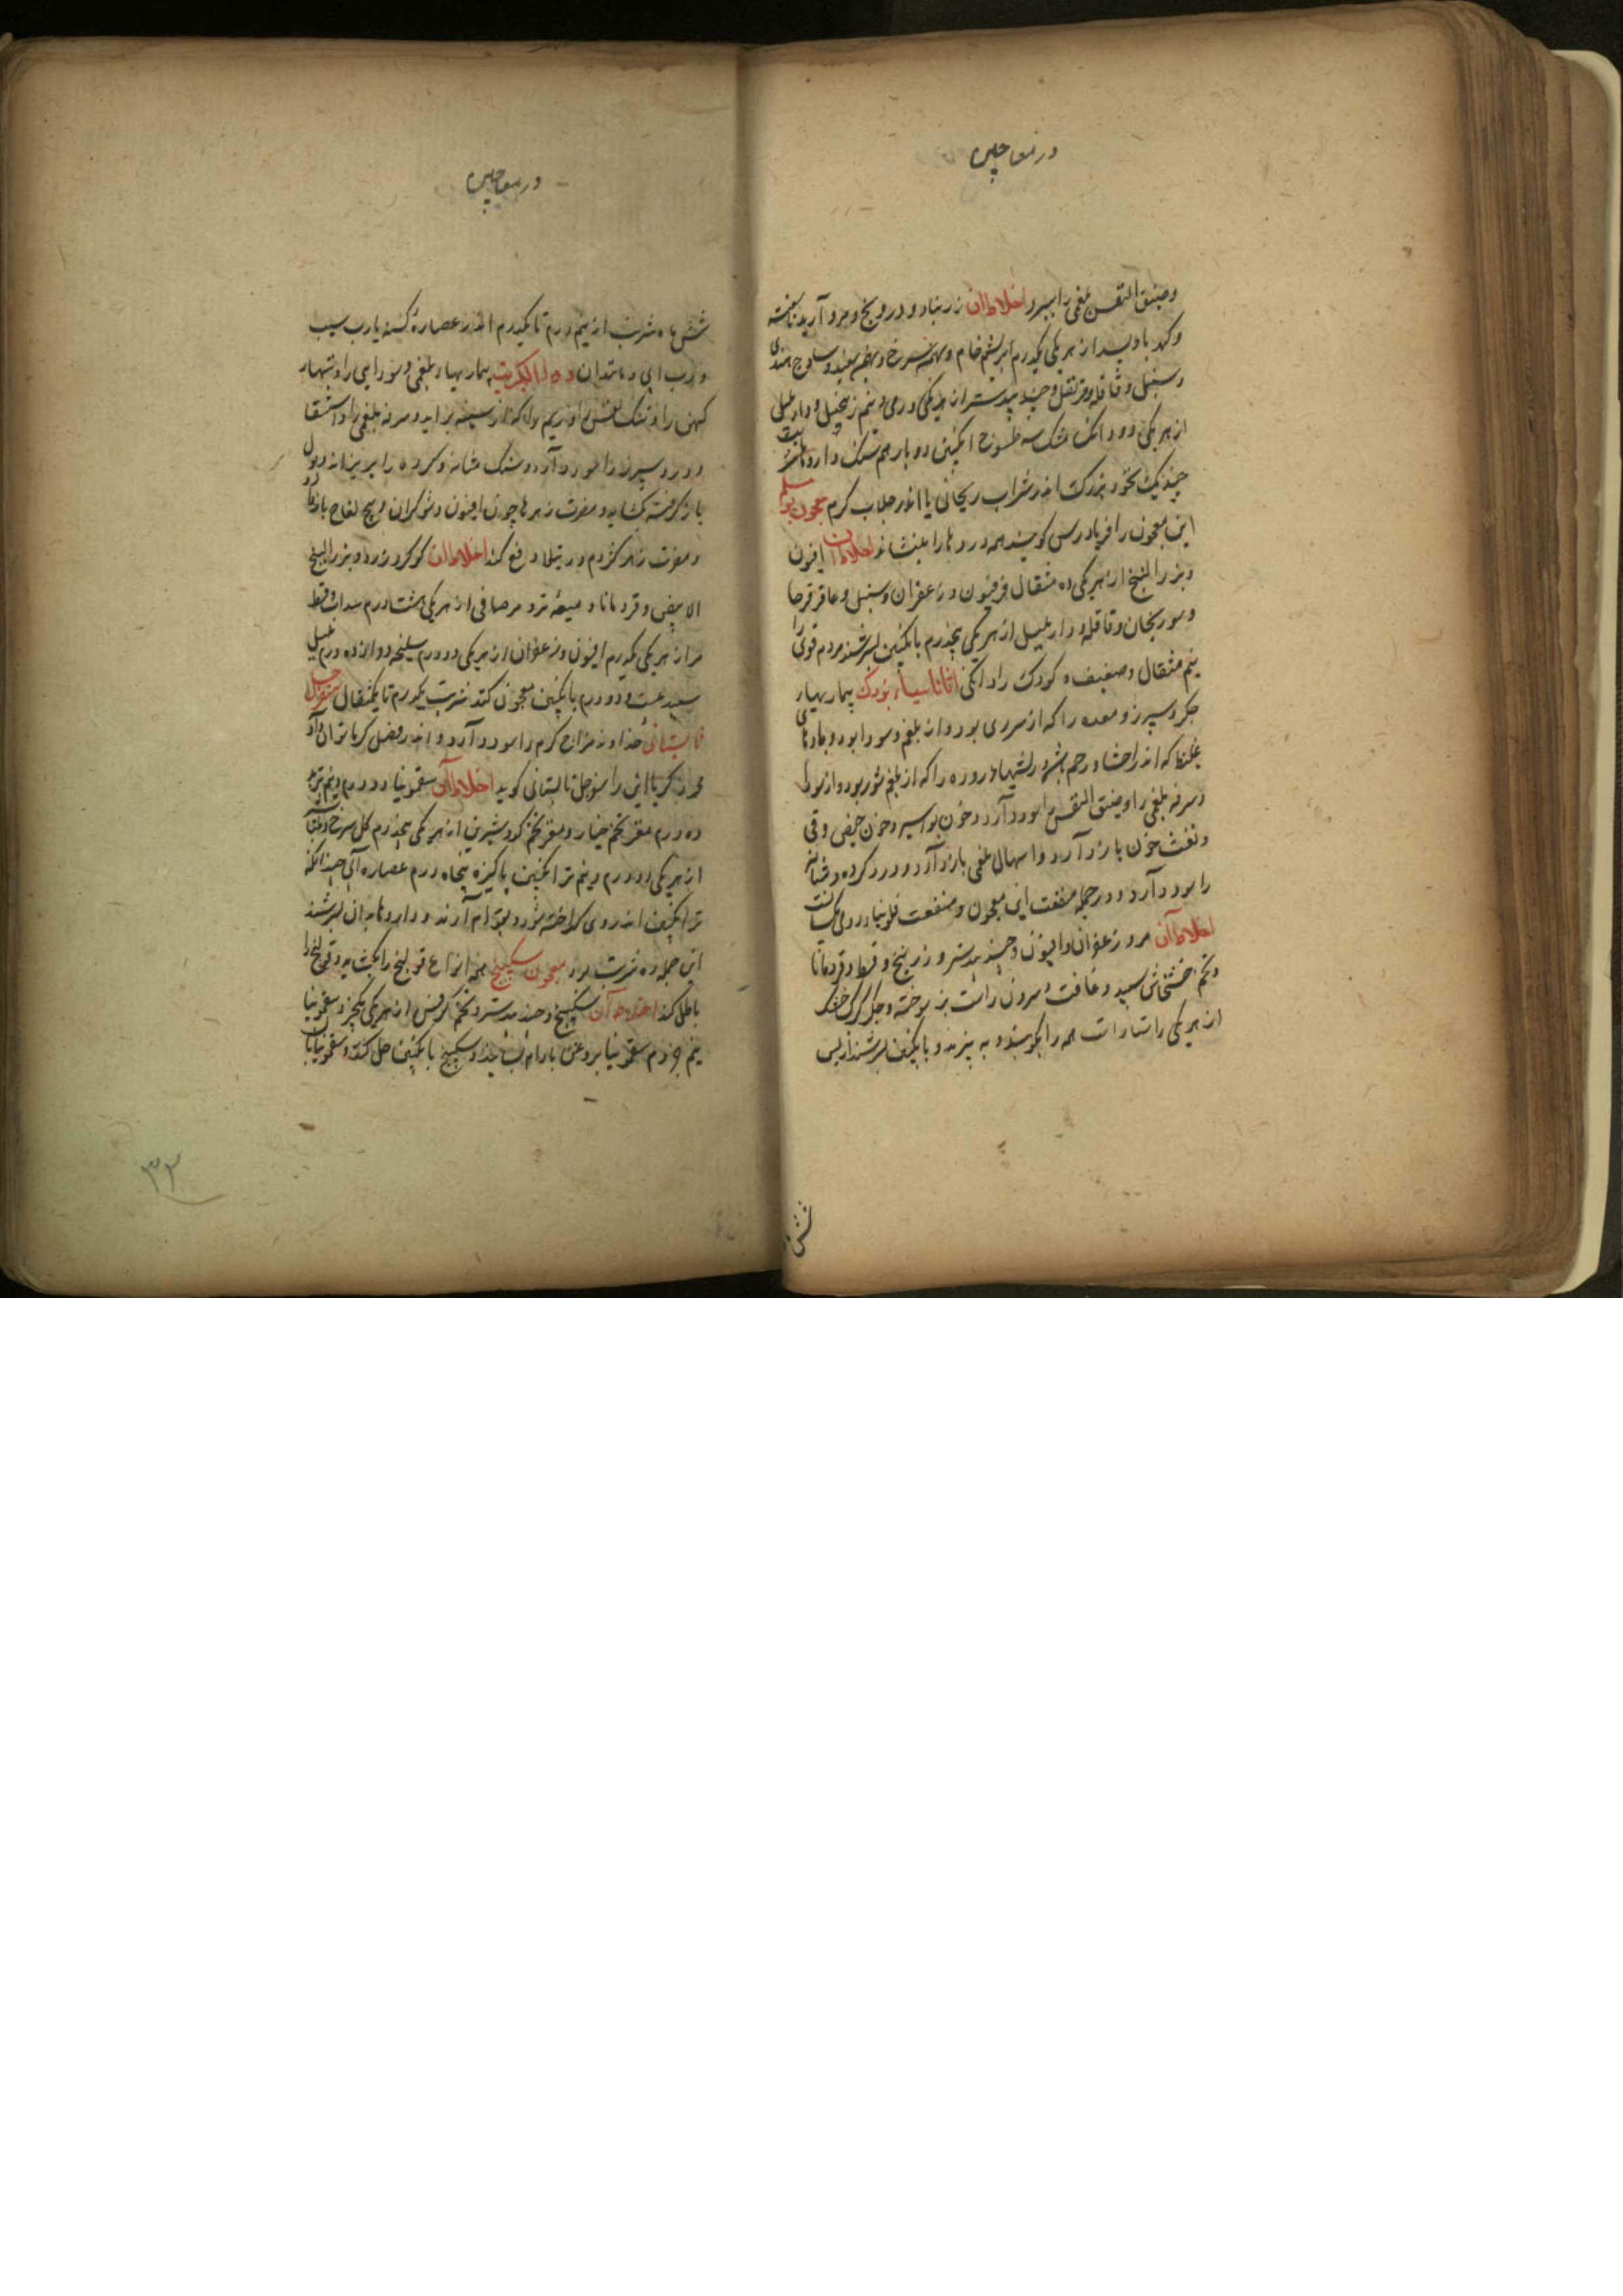 در معاجین
وضیق النفس بلغمی را ببرد اخلاط آن زرنباد و درونج و مروارید ناسفته
و کهربا و بسد از هر یکی یکدرم ابریشم خام و بهمن سرخ و بهمن سپید و ساذج هندی
و سنبل و قاقله و قرنفل و جندبیدستر از هر یکی درمی و نیم زنجبیل و دارفلفل
از هر یکی دو دانک مشک سه طسوج انکبین دو بار هم سنک داروها شربت
چند یک نخود بزرک اندر شراب ریحانی یا اندر جلاب کرم معجون بولس
این معجون را فریادرس کویند همه دردها را بنشاند اخلاط آن افیون
و بزرالبنج از هر یکی ده مثقال فرفیون و زعفران و سنبل و عاقرقرحا
و سورنجان و قاقله و دارفلفل از هر یکی پنجدرم بانکبین بسرشند مردم قوی را
نیم مثقال و ضعیف و کودک را دانکی اثاناسیاء بزرک بیماریهای
جکر و سپرز و معده را که از سردی بود و از بلغم و سودا بود و بادهای
غلیظ که اندر احشا و رحم باشد و تبهای دوره را که از بلغم شور بود و از سودا
و سرفه بلغمی را و ضیق النفس را سود دارد و خون بواسیر و خون حیض و قی
و نفث خون باز دارد و اسهال بلغمی باز دارد و درد کرده و مثانه
را سود دارد و در جمله منفعت این معجون و منفعت فلونیا رومی یکیست
اخلاط آن مر و زعفران و افیون و جندبیدستر و زربنج و قسط و قردمانا
و تخم خشخاش سپید و غافت و سرون راست بز سوخته و جکر کرک خشک
از هر یکی راستاراست همه را بکوبند و به بیزند و بانکبین بسرشند از پس
شش
در معاجین
شش ماه شربت از نیم درم تا یکدرم اندر عصاره کسنه یا رب سیب
و رب آبی و مانند آن دواء الکبریت بیماریهای بلغمی و سودایی را و تبهای
کهن را و تنک نفس را و ریم را که از سینه برآید و سرفه بلغمی را و استسقا
و درد سپرز را سود دارد و سنک مثانه و کرده را بریزاند و بول
باز کرفته بکشاید و مضرت زهرها چون افیون و شوکران و بیخ لفاح باز دارد
و مضرت زهر کژدم و رتیلا دفع کند اخلاط آن کوکرد زرد و بزرالبنج
الابیض و قردمانا و میعه تر و مر صافی از هر یکی هشت درم سداب و قسط
مر از هر یکی یکدرم افیون و زعفران از هر یکی دو درم سلیخه دوازده درم فلفل
سپید بیست و دو درم بانکبین معجون کنند شربت یکدرم تا یکمثقال سفرجل
تابستانی خداوند مزاج کرم را سود دارد و اندر فصل کرما توان داد
محمد زکریا این را سفرجل تابستانی کوید اخلاط آن سقمونیا دو درم و نیم تربد
ده درم مغز تخم خیار و مغز تخم کدو شیرین از هر یکی پنجدرم کل سرخ و طباشیر
از هر یکی دو درم و نیم ترانکبین پاکیزه پنجاه درم عصاره آبی چندانکه
ترانکبین اندر وی کداخته شود و بقوام آرند و داروها بدان بسرشند
این جمله ده شربت بود معجون سکبینج همه انواع قولنج را بکشاید و قولنج را
باطل کند اخلاط آن سکبینج و جندبیدستر و تخم کرفس از هر یکی پنجدرم سقمونیا
نیم درم سقمونیا بروغن بادام بسایند و سکبینج بانکبین حل کنند و سقمونیا با
۳۲